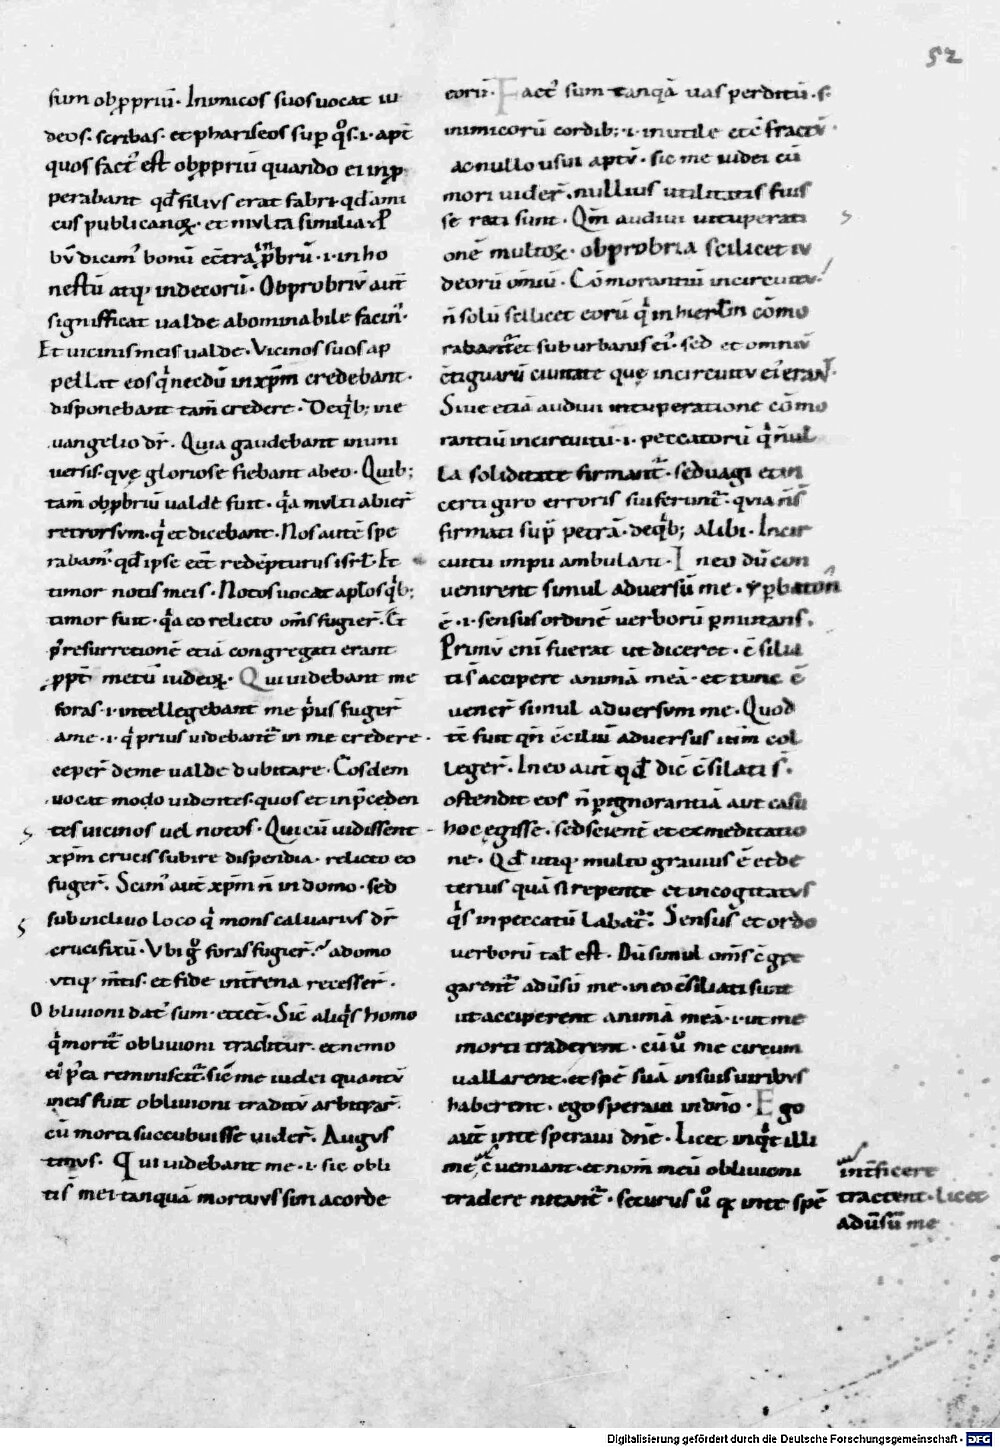 52
sum obꝓpriū. Inimicos suos uocat iu
deos. scribas. et phariseos sup̄ q̊s. i. apt̄
quos fact᷒ est obꝓpriū quando ei inp̱
perabant qd̄ filius erat fabri qd̄ ami
cus publicanoꝝ. et multa similia
bū dicim᷒ bonū ec̄tra in p̄brū. i. inho
nestū atq; indecorū. Obprobriū aut̄
significat ualde abominabile facin᷒.
Et uicinis meis ualde. Vicinos suos ap
pellat eos qⁱ necdū in xp̄m credebant.
disponebant tam̄ credere. De qⁱb; in e
uangelio dr̄. Quia gaudebant inuni
uersis. quę gloriose fiebant ab eo. Quib;
tam̄ obp̄briū ualde fuit. qᵃ multi abier̄
retrorsum. qⁱ et dicebant. Nos autē spe
rabam᷒. qd̄ ipse eēt redēpturus isrl̄. Et
timor notis meis. Notos uocat apl̄os qⁱb;
timor fuit. qᵃ eo relicto om̄s fugier̄. Et
p᷒ resurrectionē etiā congregati erant
ꝓpt̄ metū iudeoꝝ. Qui uidebant me
foras. i. intellegebant me pⁱus fuger̄
a me. i. qⁱ prius uidebant᷒ in me credere.
ceper̄ de me ualde dubitare. Eosdem
uocat modo uidentes. quos et in p̄ceden
tes uicinos uel notos. Qui cū uidissent
xp̄m crucis subire dispendia. relicto eo
fuger̄. Scim᷒ aut̄ xp̄m n̄ in domo. sed
sub incliuo loco qⁱ mons caluarius dr̄
crucifixū. Vbi g̊ foras fugier̄. a domo
utiq; m̄tis. et fide int̄rena recesser̄.
Obliuioni dat᷒ sum. et cet̄. Sic̄ aliqⁱs homo
qⁱ morit᷒ obliuioni traditur. et nemo
ei᷒ p᷒ea reminiscit᷒. sic̄ me iudei quantū
in eis fuit obliuioni traditū arbitrar̄.
cū morti succubuisse uider̄. Augus
tinus. Qui uidebant me. i. sic obli
ti s̄ mei tanquā mortuus sim a corde
eorū. Fact᷒ sum tanqᵃ̄ uas perditū. s.
inimicorū cordib;. i. inutile et c̄fractū.
ac nullo usui aptū. sic me iudei cū
mori uider̄. nullius utilitatis fuis
se rati sunt. Qm̄ audiui uituperati
onē multoꝝ. obprobria scilicet iu
deorū om̄iū. Cōmorantiū in circuitu.
n̄ solū scilicet eorū qⁱ in hierl̄m cōmo
rabant᷒ et suburbanis ei᷒. sed et omniū
c̄tiguarū ciuitatē quę in circuitu ei᷒ erant.
Siue etiā audiui uituperatione cōmo
rantiū in circuitu. i. peccatorū qⁱ nul
la soliditate firmant᷒. sed uagi et in
certi giro erroris sui ferunt᷒. quia n̄ s̄
firmati sup̄ petrā. de qⁱb; alibi. In cir
cuitu impii ambulant. In eo dū con
uenirent simul aduersū me. yꝑbaton
ē. i. sensus ordinē uerborū ꝑmutans.
Primū eni fuerat ut diceret. c̄silia
ti s̄ accipere animā meā. et tunc c̄
uener̄ simul aduersum me. Quod
tc̄ fuit qn̄ c̄ciliū aduersus itim col
leger̄. In eo aut̄ qd̄ dic̄ c̄siliati s̄.
ostendit eos n̄ ꝑ ignorantiā aut casu
hoc egisse. sed scient̄ et ex meditatio
ne. Qd̄ utiq; multo grauius ē et de
terius quā si repente et incogitatus
qⁱs in peccatū labat᷒. Sensus et ordo
uerborū tal̄ est. Dū simul om̄s c̄gre
garent᷒ adūsū me. in eo c̄siliati sunt
ut acciperent animā meā. i. ut me
morti traderent. cū ů me circum
uallarent. et spē suā in suis uiribus
haberent. ego speraui in dn̄o. Ego
aut̄ in te speraui dn̄e. Licet inqⁱt illi
me c̄ueniant. et nom̄ meū obliuioni
tradere nitant᷒. securus ů qᵃ in te spē
int̄ficere
tractent. licet
adūsū me
Digitalisierung gefördert durch die Deutsche Forschungsgemeinschaft - DFG